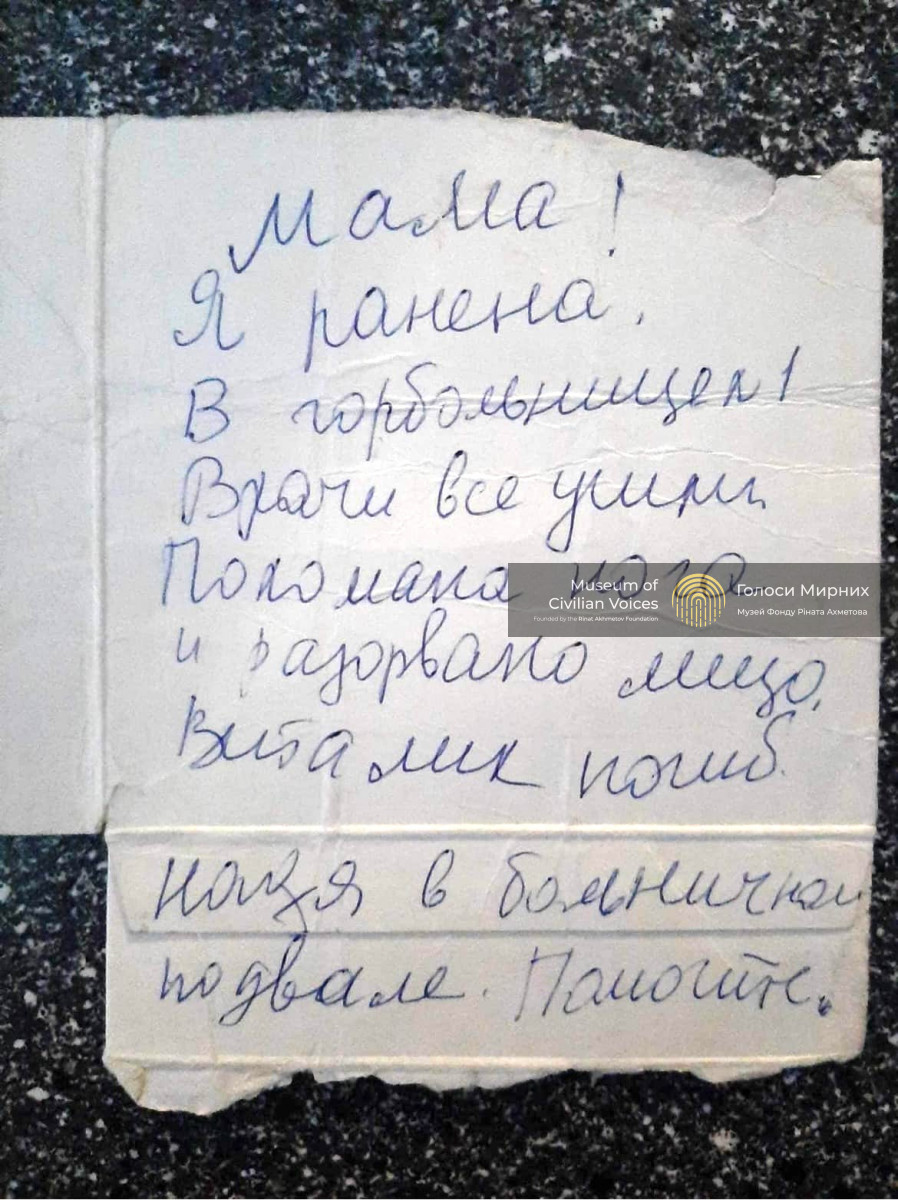 Мама!
Я ранена.
В горбольнице №1
Врачи все ушли
Поломана нога
и разорвано лицо.
Виталик погиб.
Надя в больничном
подвале. Помогите.
Museum of
Civilian Voices
Founded by the Rinat Akhmetov Foundation
Голоси Мирних
Музей Фонду Ріната Ахметова